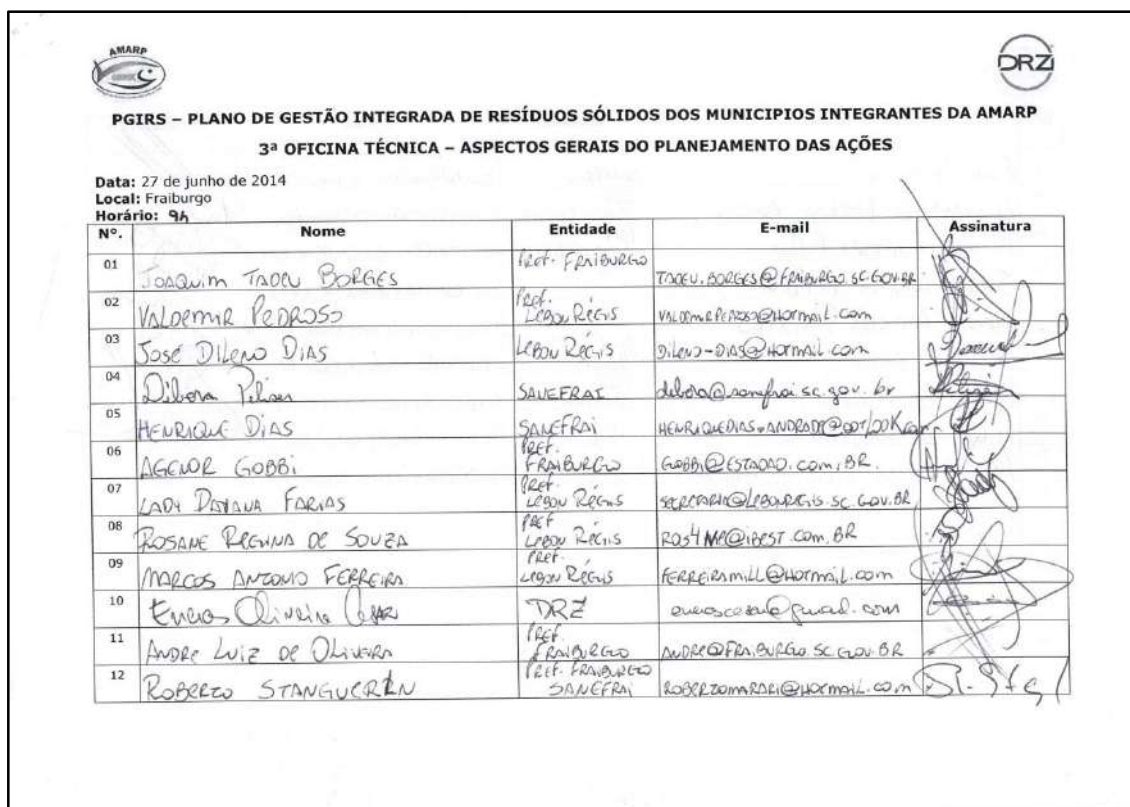 AMARP
DRZ
PGIRS – PLANO DE GESTÃO INTEGRADA DE RESÍDUOS SÓLIDOS DOS MUNICIPIOS INTEGRANTES DA AMARP
3ª OFICINA TÉCNICA – ASPECTOS GERAIS DO PLANEJAMENTO DAS AÇÕES
Data: 27 de junho de 2014
Local: Fraiburgo
Horário: 9h
Nº. Nome Entidade E-mail Assinatura
01 JOAQUIM TADEU BORGES Pref. FRAIBURGO TADEU.BORGES@FRAIBURGO.SC.GOV.BR
02 VALDEMIR PEDROSO Pref. LEBON RÉGIS VALDEMIRPEDROSO@HOTMAIL.COM
03 JOSÉ DILENO DIAS LEBON RÉGIS DILENO-DIAS@HOTMAIL.COM
04 Débora SANEFRAI debora@sanefrai.sc.gov.br
05 HENRIQUE DIAS SANEFRAI HENRIQUEDIAS.ANDRADE@OUTLOOK.com
06 AGENOR GOBBI PREF. FRAIBURGO GOBBI@ESTADAO.COM.BR.
07 LADY DAYANA FARIAS PREF. LEBON RÉGIS SECRETARIA@LEBONREGIS.SC.GOV.BR
08 ROSANE REGINA DE SOUZA PREF LEBON RÉGIS ROS4MP@IBEST.COM.BR
09 MARCOS ANTONIO FERREIRA PREF. LEBON RÉGIS FERREIRAMILL@HOTMAIL.COM
10 Eneias Oliveira Cesar DRZ eneiascesar@gmail.com
11 ANDRE LUIZ DE OLIVEIRA PREF. FRAIBURGO ANDRE@FRAIBURGO.SC.GOV.BR
12 ROBERTO STANGUERLIN PREF. FRAIBURGO SANEFRAI ROBERTOMARARI@HOTMAIL.COM